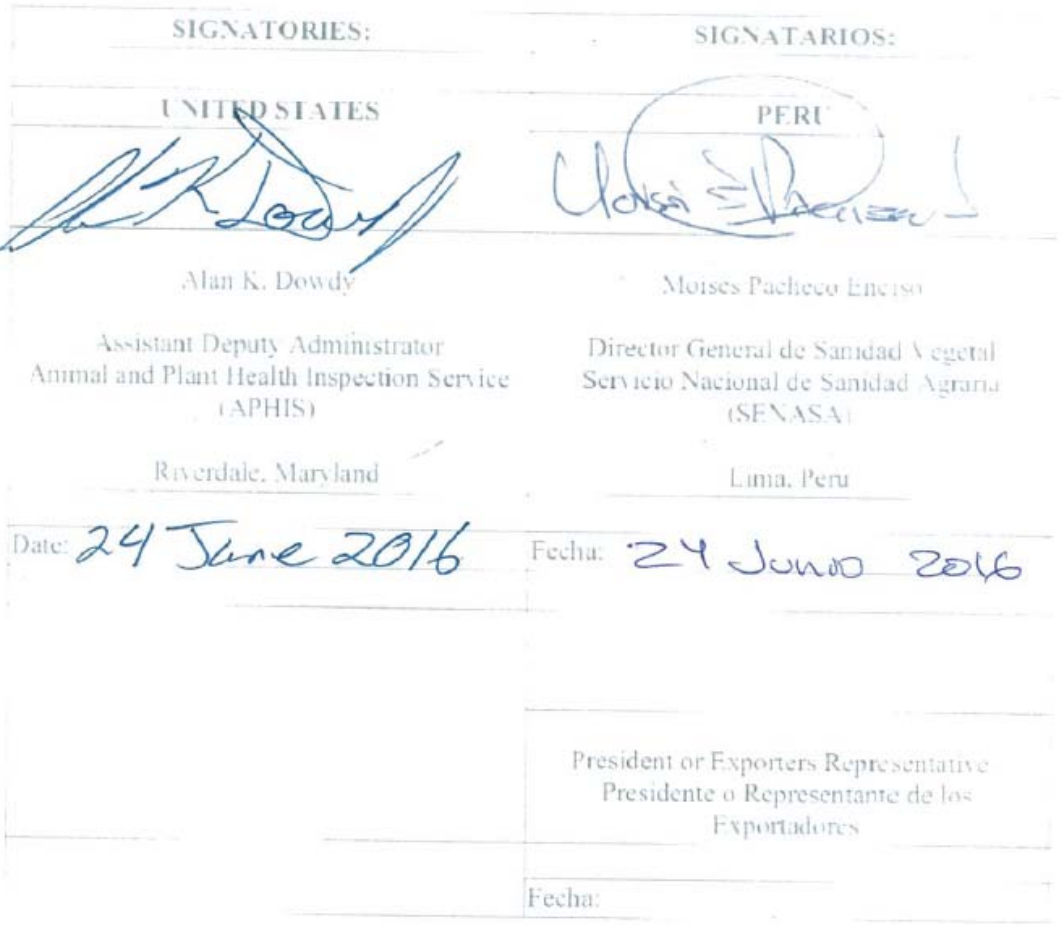 SIGNATORIES:
UNITED STATES
Alan K. Dowdy
Assistant Deputy Administrator
Animal and Plant Health Inspection Service
(APHIS)
Riverdale, Maryland
Date: 24 June 2016
SIGNATARIOS:
PERU
Moises Pacheco Enciso
Director General de Sanidad Vegetal
Servicio Nacional de Sanidad Agraria
(SENASA)
Lima, Peru
Fecha: 24 Junio 2016
President or Exporters Representative
Presidente o Representante de los
Exportadores
Fecha: